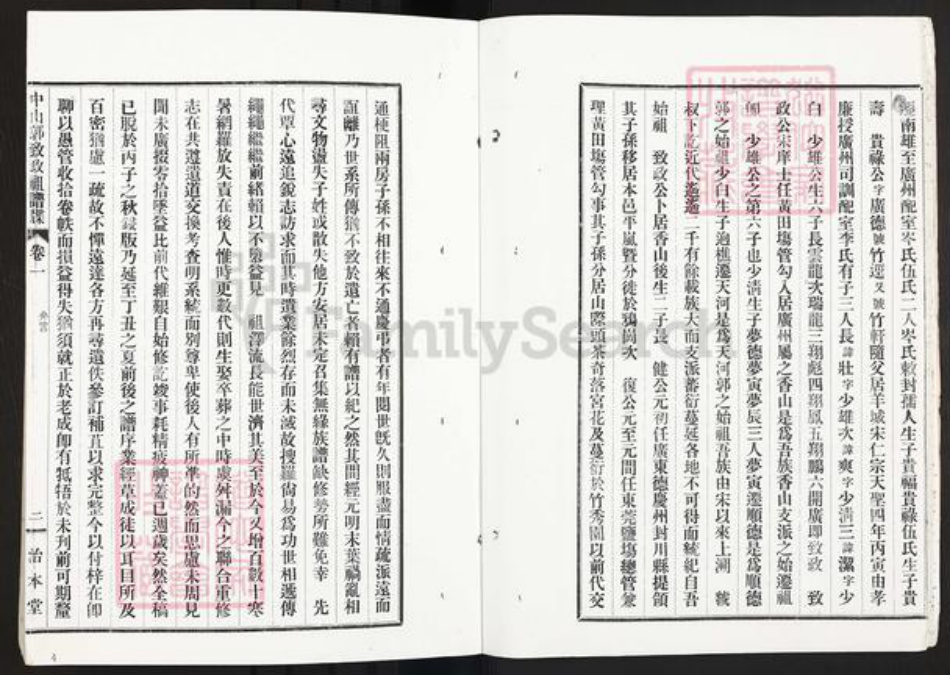 南雄至廣州配室岑氏伍氏二人岑氏敕封孺人生子貴福貴祿伍氏生子貴
壽 貴祿公字廣德號竹逕又號竹軒隨父居羊城宋仁宗天聖四年丙寅由孝
廉授廣州司訓配室李氏有子三人長諱壯字少雄次諱爽字少淸三諱潔字少
白 少雄公生六子長雲龍次瑞龍三翔彪四翔鳳五翔鵬六開廣即致政 致
政公宋庠士任黃田塲管勾入居廣州屬之香山是爲吾族香山支派之始遷祖
即 少雄公之第六子也少淸生子夢德夢寅夢辰三人夢寅遷順德是爲順德
郭之始祖少白生子 樵遷天河是爲天河郭之始祖吾族由宋以來上溯 虢
叔下訖近代遙遙二千有餘載族大而支派蕃衍蔓延各地不可得而統紀自吾
始祖 致政公卜居香山後生二子長 健公元初任廣東德慶州封川縣提領
其子孫移居本邑平嵐暨分徙於鴉岡次 復公元至元間任東莞鹽塲總管兼
理黃田塲管勾事其子孫分居山際頭茶奇落宮花及蔓衍於竹秀園以前代交
通梗阻兩房子孫不相往來不通慶弔者有年閱世旣久則服盡而情疏派遠而
誼離乃世系所傳猶不致於遺亡者賴有譜以紀之然其間經元明末葉禍亂相
尋文物盪失子姓或散失他方安居未定召集無緣族譜缺修勢所難免幸 先
代單心遠追銳志訪求而其時遺業餘烈存而未滅故搜羅尙易爲功世相遞傳
繩繩繼繼前緒賴以不 益見 祖澤流長能世濟其美至於今又增百數十寒
暑網羅放失責在後人惟時更數代則生娶卒葬之中時虞舛漏今之聯合重修
志在共遵遺道交換考查明系統而別尊卑使後人有所準的然而思慮未周見
聞未廣掇零拾墜益比前代維艱自始修訖竣事耗精疲神蓋已週歲矣然全稿
已脫於丙子之秋 版乃延至丁丑之夏前後之譜序業經草成徒以耳目所及
百密猶慮一疏故不憚遠達各方再尋遺佚參訂補苴以求完整今以付梓在即
聊以愚管收拾卷帙而損益得失猶須就正於老成即有牴牾於未刋前可期釐
中山郭致政祖譜牒 卷一 弁言 二 治本堂
FamilySearch